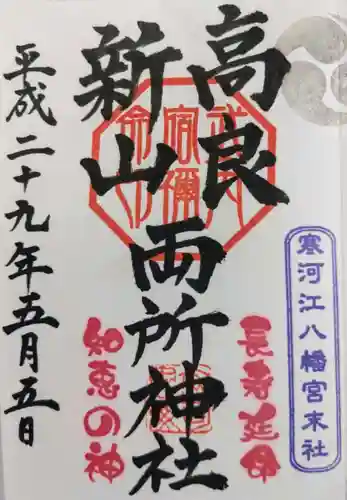 寒河江八幡宮末社
長寿延命
高良
新山
両所神社
武内宿禰命
知恵の神
平成二十九年五月五日